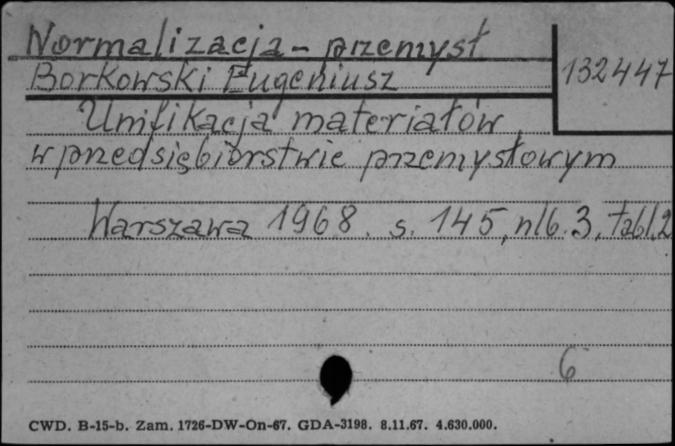 Normalizacja - przemysł
Borkowski Eugeniusz
132447
Unifikacja materiałów
w przedsiębiorstwie przemysłowym
Warszawa 1968. s. 145, nlb. 3, tabl. 2
6
CWD. B-15-b. Zam. 1726-DW-On-67. GDA-3198. 8.11.67. 4.630.000.